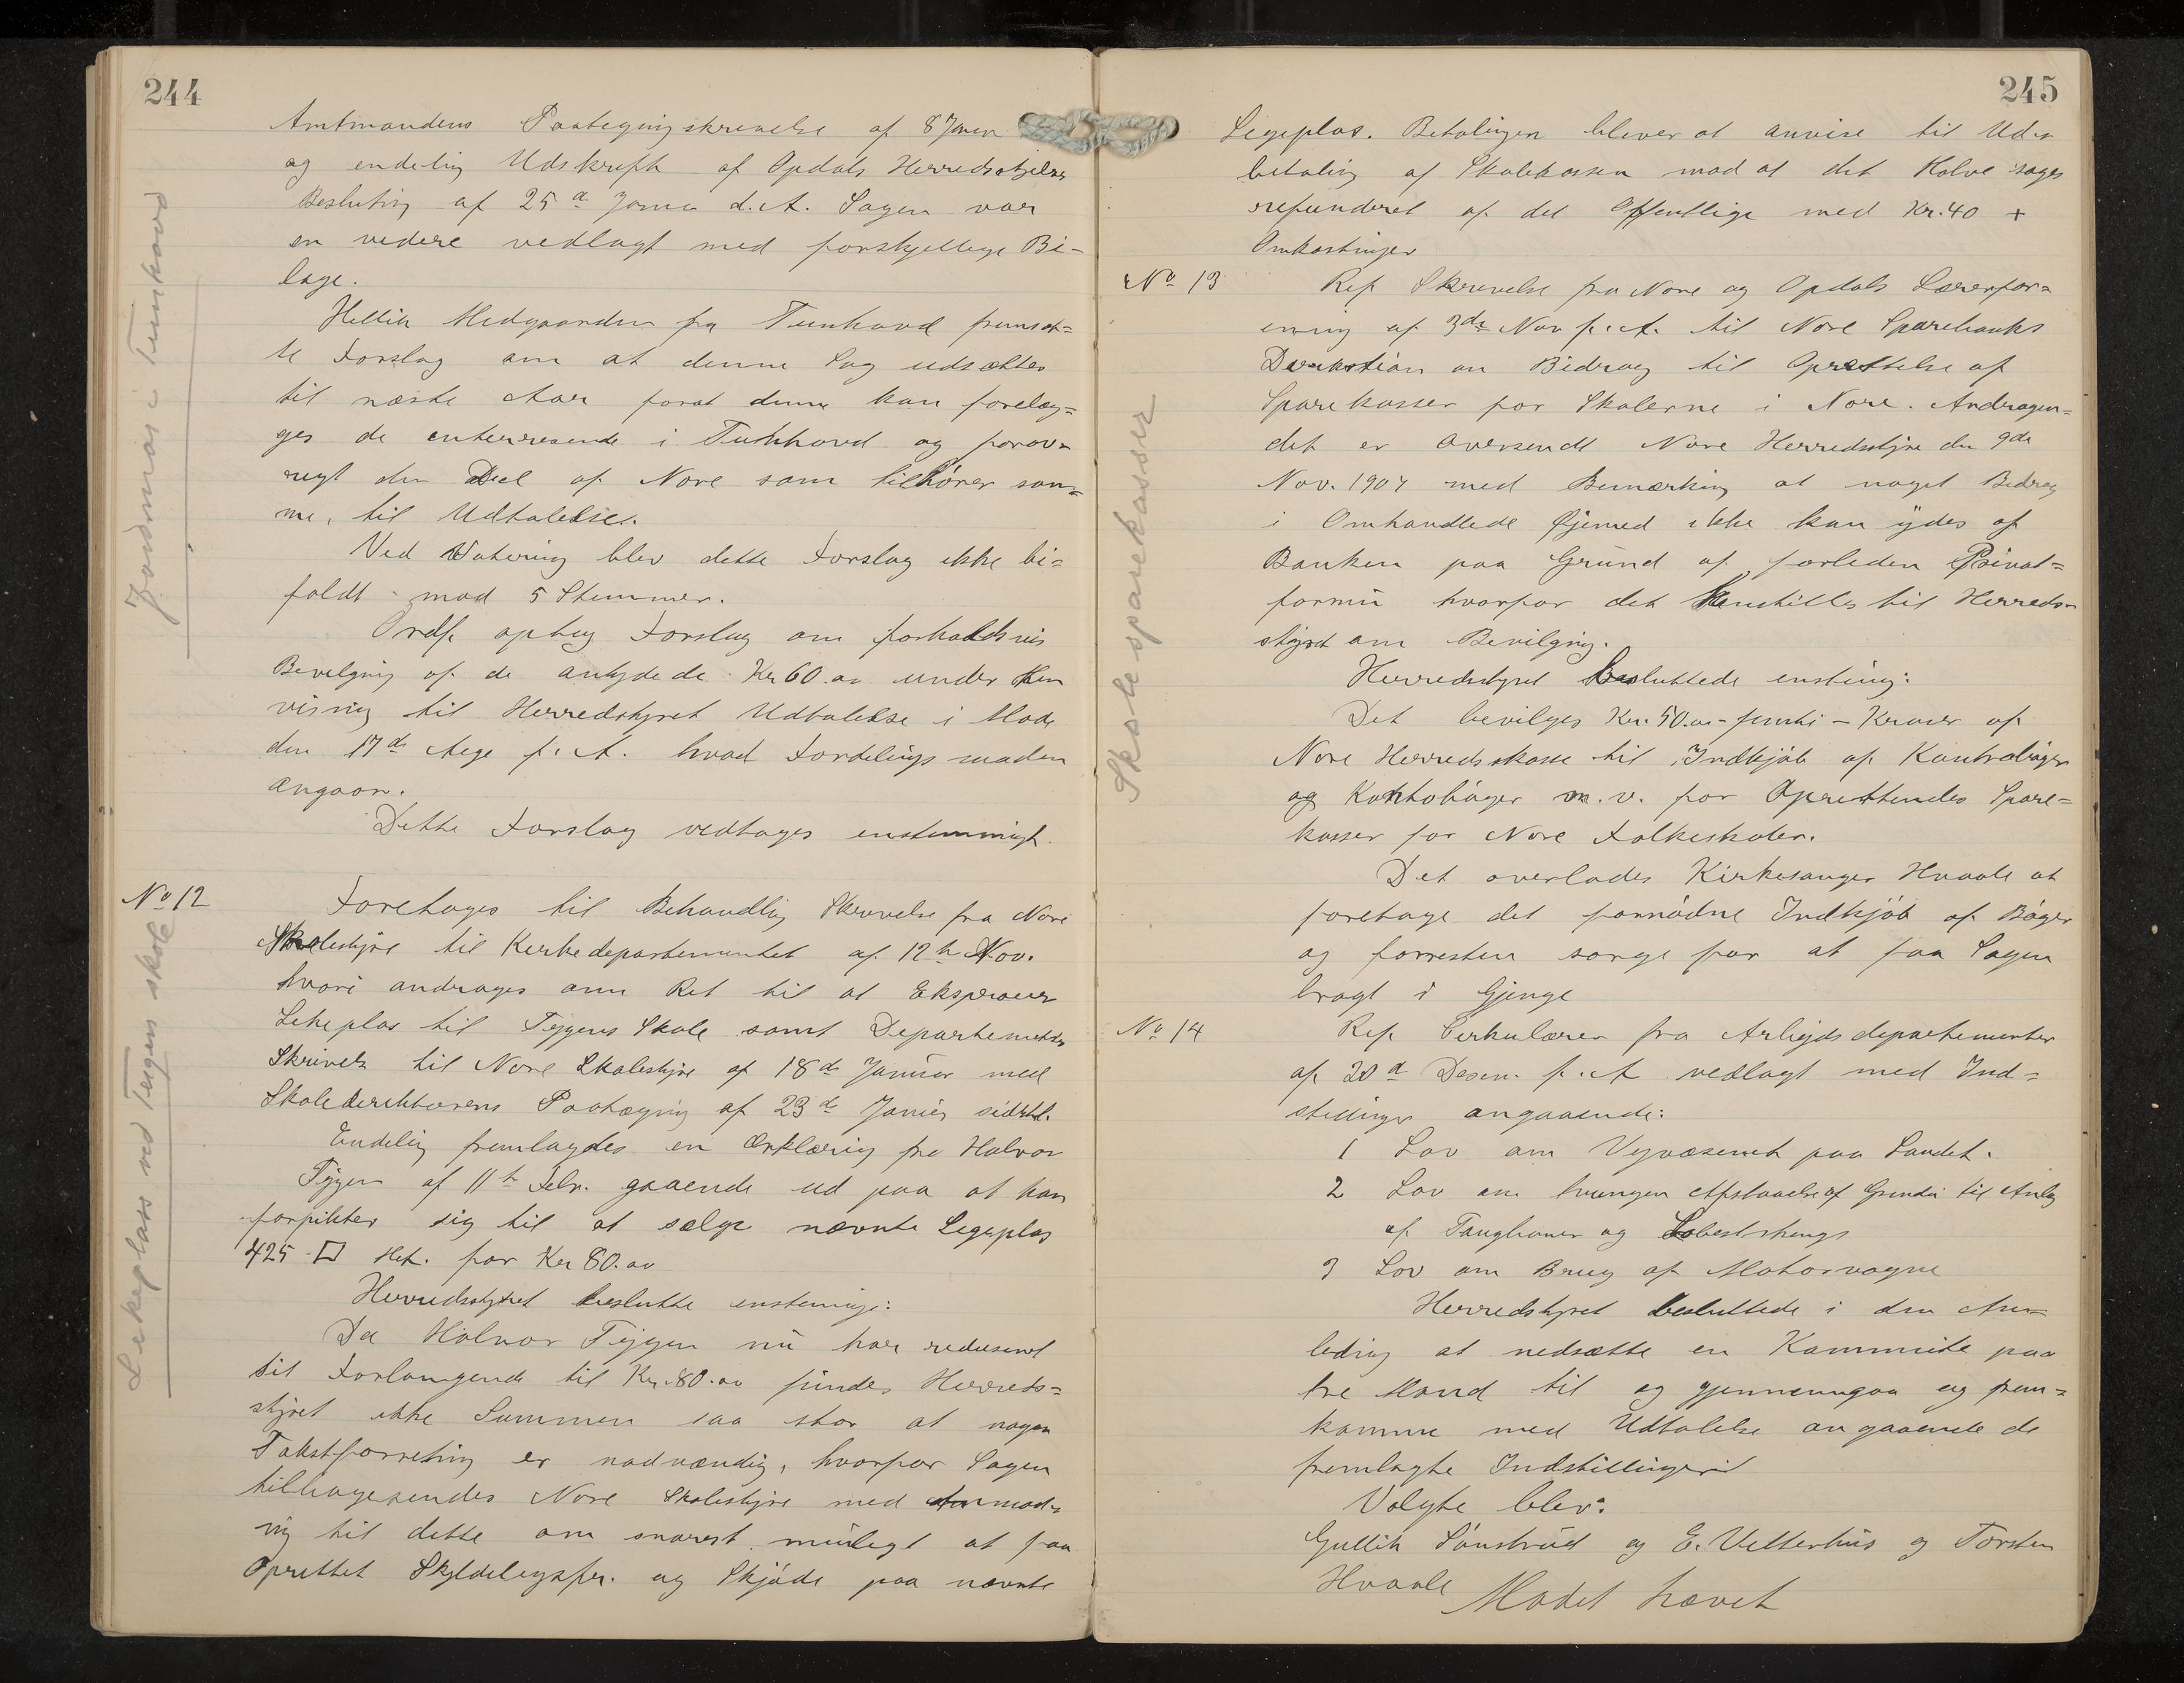 244
Amtmandens Paategningskrivelse af 8 Janr
og endelig Udskrift af Opdals Herredsstyres
Beslutnig af 25d Janua d.A. Sagen var
en videre vedlagt med forskjellige Bi-
lage.
Jordmor i Tunhovd
Hellik Midgaarden fra Tunhovd fremsat=
te Forslag om at denne Sag udsættes
til næste Aar forat denne kan forelæg=
ges de enterresende i Tunhovd og forøv-
rigt den Deel af Nore som tilhører sam=
me, til Udtalelse.
Ved Votering blev dette Forslag ikke bi=
faldt mod 5 Stemmer.
Ordf. optog Forslag om forholdsvis
Bevilgnig af de antydede Kr 60.oo under Hen
visnig til Herredstyret Udtalelse i Møde
den 17de Aug f.A. hvad Fordelingsmaden
angaar.
Dette Forslag vedtages enstemmigt.
No 12
Lekeplass ved Teigen skole
Foretages til Behandlig Skrivelse fra Nore
Skolestyre til Kirkedepartementet af 12te Nov.
hvori andrages om Ret til at Ekspropr
Lekeplas til Teigens Skole samt Departemets
Skrivels til Nore Skolestyre af 18de Januar med
Skoledirektørens Paategnig af 23de Januar sidstl.
Endelig fremlagdes en Erklærig fra Halvor
Teigen af 11te Febr. gaaende ud paa at han
forpikter sig til at sælge nævnte Legeplas
425 □ Met. for Kr 80.oo
Herredsstyret beslutte enstemig:
Da Halvor Teigen nu har reduseret
sit Forlangende til Kr. 80.oo findes Herreds=
styret ikke Summen saa stor at nogen
Takstforretnig er nødvændig, hvorfor Sagen
tilbagesendes Nore Skolestyre med Anmod-
nig til dette om snarest muligt at faa
Oprettet Skyldelingsfor. og Skjøde paa nævnte
245
Legeplas. Betalingen bliver at anvise til Ud-
betalig af Skolekassen mod at det Halve søges
refunderet af det Offentlige med Kr. 40 +
Omkostninger
No 13
Skolesparekasser
Ref Skrivelse fra Nore og Opdals Lærerfor=
ening af 3die Nov f.A. til Nore Sparebanks
Direktion om Bidrag til Oprettelse af
Sparekasser for Skolerne i Nore. Andragen=
det er oversendt Nore Herredsstyre den 9de
Nov. 1907 med Bemærkning at noget Bidrag
i Omhandlede Øjemed ikke kan ydes af
Banken paa Grund af forleden
hvorfor det Henstilles til Herreds-
styret om Bevilgnig.
Herredsstyret besluttede enstemig:
Det bevilges Kr. 50.oo - femti - Kroner af
Nore Herredskasse til Indkjøb af Kontrabøger
og Kontobøger m.v. for Oprettendes Spare=
kasser for Nore Folkeskoler.
Det overlades Kirkesanger Hvaale at
foretage det fornødne Indkjøb af Bøger
og forresten sørge for at faa Sagen
bragt i Gjenge
No 14
Ref Cirkulærer fra Arbejdsdepartementet
af 20d Desem. f.A. vedlagt med Ind=
stillinger angaaende:
1 Lov om Vejvæsenet paa Landet.
2 Lov om tvungen Afstaaelse af Grunde til Anlæg
af Taugbaner og Løbestrenge
3 Lov om Brug af Motorvogne
Herredstyret besluttede i den An-
ledning at nedsætte en Kommite paa
tre Mænd til og gjennemgaa og frem=
komme med Udtalelse angaaende de
fremlagte Indstillinger.
Valgte blev:
Gullik Sønstrud og E. Vetterhus og Torsten
Hvaale
Mødet hævet